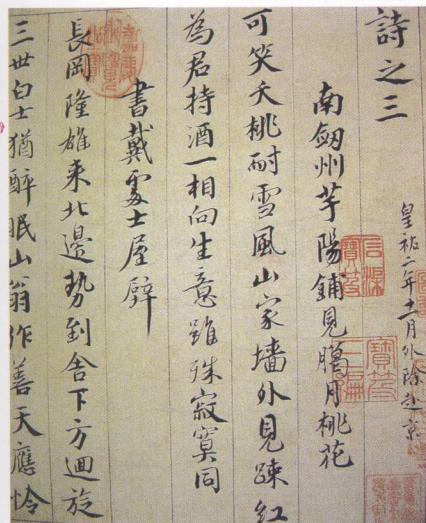 詩之三
皇祐二年十一月外除赴京
南劒州芋陽鋪見臈月桃花
可笑夭桃耐雪風山家墻外見疎紅
為君持酒一相向生意雖殊寂寞同
書戴處士屋壁
長岡隆雄來北邊勢到舍下方迴旋
三世白士猶醉眠山翁作善天應憐